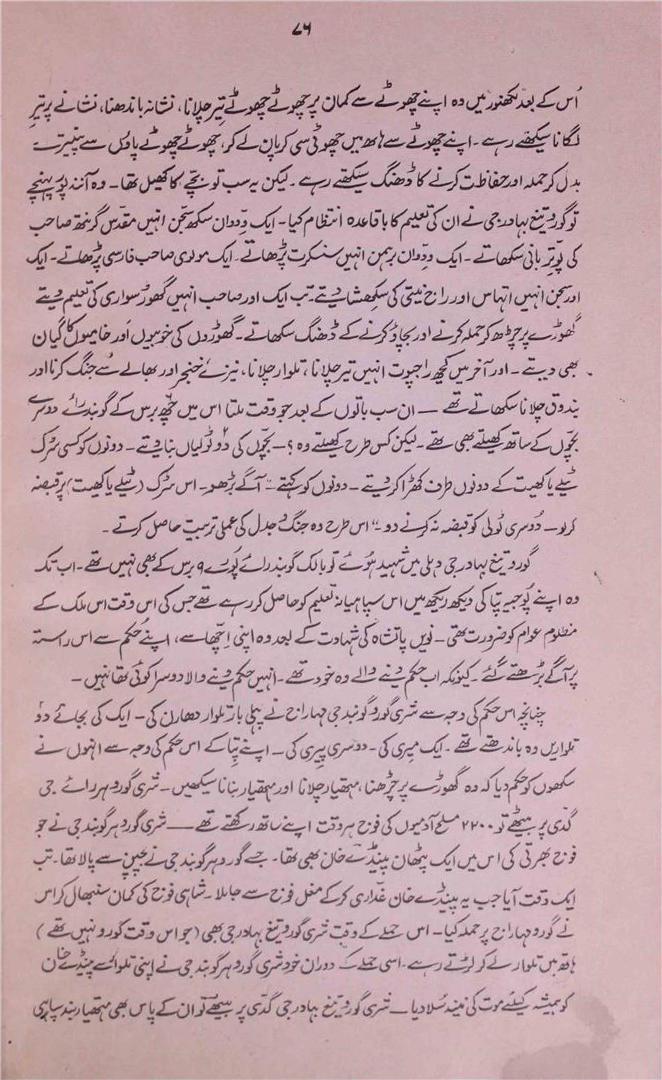 ۷۶
اُس کے بعد لکھنور میں وہ اپنے چھوٹے سے کمان پر چھوٹے چھوٹے تیر چلانا، نشانہ باندھنا، نشانے پر تیر
لگانا سیکھتے رہے۔ اپنے چھوٹے سے ہاتھ میں چھوٹی سی کرپان لے کر، چھوٹے چھوٹے پاؤں سے پینترے
بدل کر حملہ اور حفاظت کرنے کا ڈھنگ سیکھتے رہے۔ لیکن یہ سب تو بچّے کا کھیل تھا۔ وہ آنند پور پہنچے
تو گورو تیغ بہادر جی نے ان کی تعلیم کا باقاعدہ انتظام کیا۔ ایک وِدوان سکھ سجن انہیں مقدس گرنتھ صاحب
کی پوتّر بانی سکھاتے۔ ایک وِدوان برہمن انہیں سنسکرت پڑھاتے۔ ایک مولوی صاحب فارسی پڑھاتے۔ ایک
اور سجن انہیں اتہاس اور راج نیتی کی سکھشا دیتے۔ تب ایک اور صاحب انہیں گھوڑ سواری کی تعلیم دیتے
گھوڑے پر چڑھ کر حملہ کرنے اور بچاؤ کرنے کے ڈھنگ سکھاتے۔ گھوڑوں کی خوبیوں اور خامیوں کا گیان
بھی دیتے۔ اور آخر میں کچھ راجپوت انہیں تیر چلانا، تلوار چلانا، نیزے خنجر اور بھالے سے جنگ کرنا اور
بندوق چلانا سکھاتے تھے — ان سب باتوں کے بعد جو وقت ملتا اس میں چھ برس کے گوبند رائے دوسرے
بچّوں کے ساتھ کھیلتے بھی تھے۔ لیکن کس طرح کھیلتے وہ؟ — بچّوں کی دو ٹولیاں بنا دیتے۔ دونوں کو کسی سڑک
ٹیلے یا کھیت کے دونوں طرف کھڑا کر دیتے۔ دونوں کو کہتے۔ "آگے بڑھو۔ اس سڑک (ٹیلے یا کھیت) پر قبضہ
کر لو — دُوسری ٹولی کو قبضہ نہ کرنے دو"۔ اس طرح وہ جنگ و جدل کی عملی تربیت حاصل کرتے۔
گورو تیغ بہادر جی دہلی میں شہید ہوئے تو بالک گوبند رائے پورے ۹ برس کے بھی نہیں تھے۔ اب تک
وہ اپنے پُوجیہ پِتا کی دیکھ ریکھ میں اس سپاہیانہ تعلیم کو حاصل کر رہے تھے جس کی اس وقت اس ملک کے
مظلوم عوام کو ضرورت تھی۔ نویں پاتشاہ کی شہادت کے بعد وہ اپنی اِچّھا سے، اپنے حُکم سے اس راستہ
پر آگے بڑھتے گئے۔ کیونکہ اب حکم دینے والے وہ خود تھے۔ انہیں حکم دینے والا دوسرا کوئی تھا نہیں۔
چنانچہ اس حکم کی وجہ سے شری گورو ہر گوبند جی مہاراج نے پہلی بار تلوار دھارن کی۔ ایک کی بجائے دو
تلواریں وہ باندھتے تھے۔ ایک میری کی۔ دوسری پیری کی۔ اپنے پِتا کے اس حکم کی وجہ سے انہوں نے
سکھوں کو حکم دیا کہ وہ گھوڑے پر چڑھنا، ہتھیار چلانا اور ہتھیار بنانا سیکھیں۔ شری گورو ہر رائے جی
گدّی پر بیٹھے تو ۲۲۰۰ مسلح آدمیوں کی فوج ہر وقت اپنے ساتھ رکھتے تھے — شری گورو ہر گوبند جی نے جو
فوج بھرتی کی اس میں ایک پٹھان پینڈے خان بھی تھا۔ جسے گورو ہر گوبند جی نے بچپن سے پالا تھا۔ تب
ایک وقت آیا جب یہ پینڈے خان غدّاری کر کے مغل فوج سے جا ملا۔ شاہی فوج کی کمان سنبھال کر اس
نے گورو مہاراج پر حملہ کیا۔ اس حملے کے وقت شری گورو تیغ بہادر جی بھی (جو اس وقت گورو نہیں تھے)
ہاتھ میں تلوار لے کر لڑتے رہے۔ اسی حملے کے دوران خود شری گورو ہر گوبند جی نے اپنی تلوار سے پینڈے خان
کو ہمیشہ کیلئے موت کی نیند سُلا دیا — شری گورو تیغ بہادر جی گدّی پر بیٹھے تو ان کے پاس بھی ہتھیار بند سپاہی